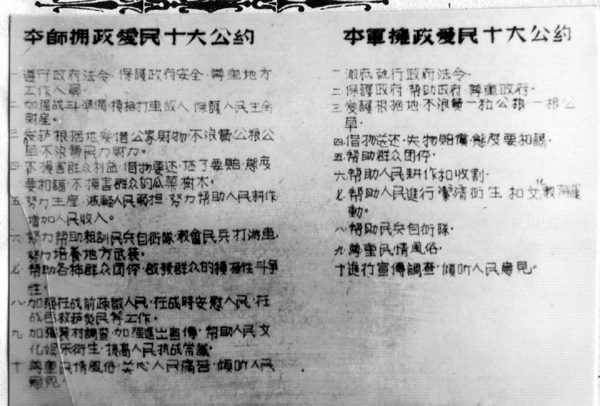 夲師拥政愛民十大公约
一 遵行政府法令·保護政府安全·尊重地方
工作人員·
二 加强战斗準備·積極打击敌人·保護人民生命
財産·
三 爱护根据地·爱惜公家财物·不浪费公粮公
草不浪费民力财力·
四 不損害群众利益·借物要还·坏了要赔·態度
要和藹·不損害群众的瓜菜樹木·
五 努力生産·减輕人民負担·努力幫助人民耕作
增加人民收入·
六 努力幫助組訓民兵自衛隊·教會民兵打游击·
努力培養地方武装·
七 幫助各种群众团体·啟發群众的積極性斗爭
性·
八 加强在战前疎散人民·在战時安慰人民·在
战后救护灾民等工作·
九 加强農村調查·加强進出宣傳·幫助人民文
化娱乐衛生·提高人民抗战常識·
十 尊重民情風俗·关心人民痛苦·傾听人民
意見·
夲軍擁政愛民十大公约
一 澈底執行政府法令·
二 保護政府·幫助政府·尊重政府·
三 爱護根据地·不浪费一粒公粮·一根公
草·
四 借物送还·失物賠償·態度要和藹·
五 幫助群众团体·
六 幫助人民耕作和收割·
七 幫助人民進行清潔衛生和文化教育運
動·
八 幫助民兵自衛隊·
九 尊重民情風俗·
十 進行宣傳調查·傾听人民意見·